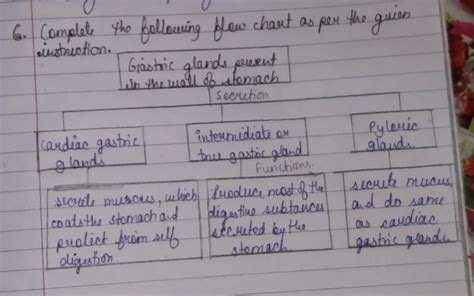 6. Complete the following flow chart as per the given
instruction.
Gastric glands present
in the wall of stomach
Secretion
Cardiac gastric
glands
intermediate or
true gastric gland
Pyloric
glands
Functions
secrete mucus, which
coats the stomach and
protect from self
digestion
Produce most of the
digestive substances
secreted by the
stomach
secrete mucus,
and do same
as cardiac
gastric glands